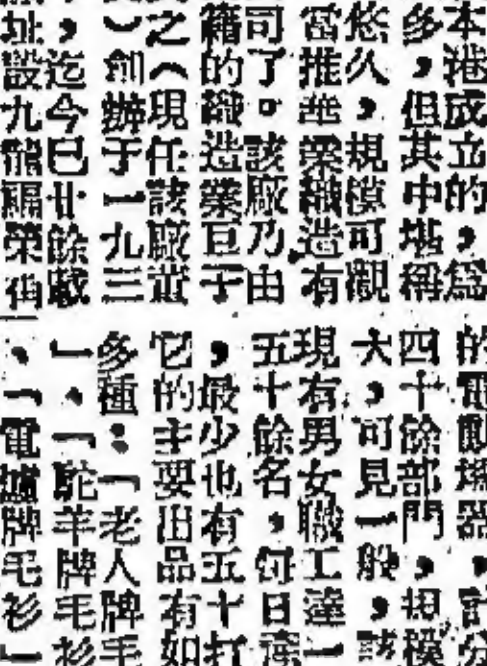 本港成立的，為
多，但其中堪稱
悠久，規模可觀
當推織造有
司了。該廠乃由
籍的織造業巨子
之（現任該廠董
）創辦于一九三
，迄今已廿餘載
址設九龍福榮街
的電動機器，計分
四十餘部門，規模
大，可見一般，該
現有男女職工達一
五十餘名，每日產
，最少也有五十打
它的主要出品有如
多種：「老人牌毛
」、「駝羊牌毛衫
、「電爐牌毛衫」